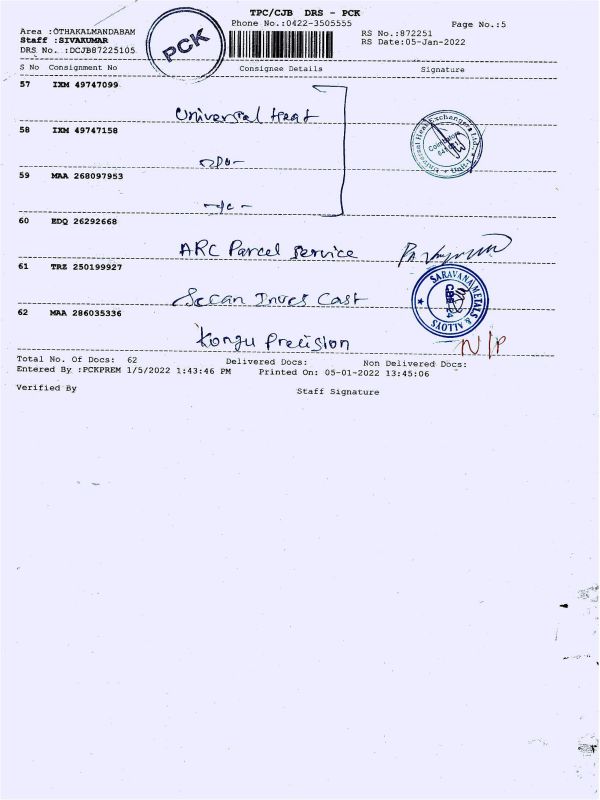 TPC/CJB DRS - PCK
Phone No.:0422-3505555
Page No.:5
Area :OTHAKALMANDABAM
Staff :SIVAKUMAR
DRS No. :DCJB87225105
PCK
RS No.:872251
RS Date:05-Jan-2022
S No Consignment No Consignee Details Signature
57 IXM 49747099
Universal Heat
58 IXM 49747158
-do-
Universal Heat Exchangers Ltd., Unit-I
Coimbatore
59 MAA 268097953
60 EDQ 26292668
ARC Parcel Service
61 TRZ 250199927
Inves Cast
SARAVANA METALS & ALLOYS
62 MAA 286035336
Kongu Precision
N/P
Total No. Of Docs: 62 Delivered Docs: Non Delivered Docs:
Entered By :PCKPREM 1/5/2022 1:43:46 PM Printed On: 05-01-2022 13:45:06
Verified By Staff Signature